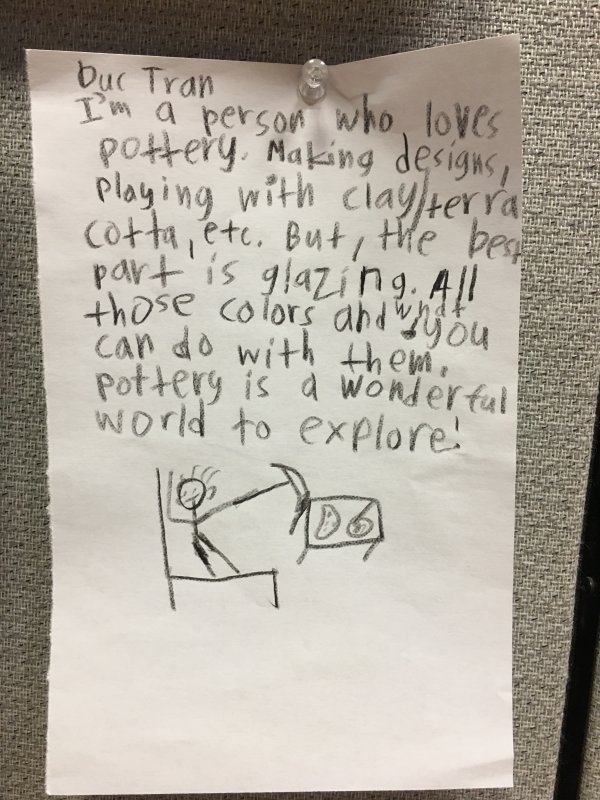 Duc Tran
I'm a person who loves
pottery. Making designs,
playing with clay/terra
cotta, etc. But, the best
part is glazing. All
those colors and what you
can do with them.
pottery is a wonderful
world to explore!